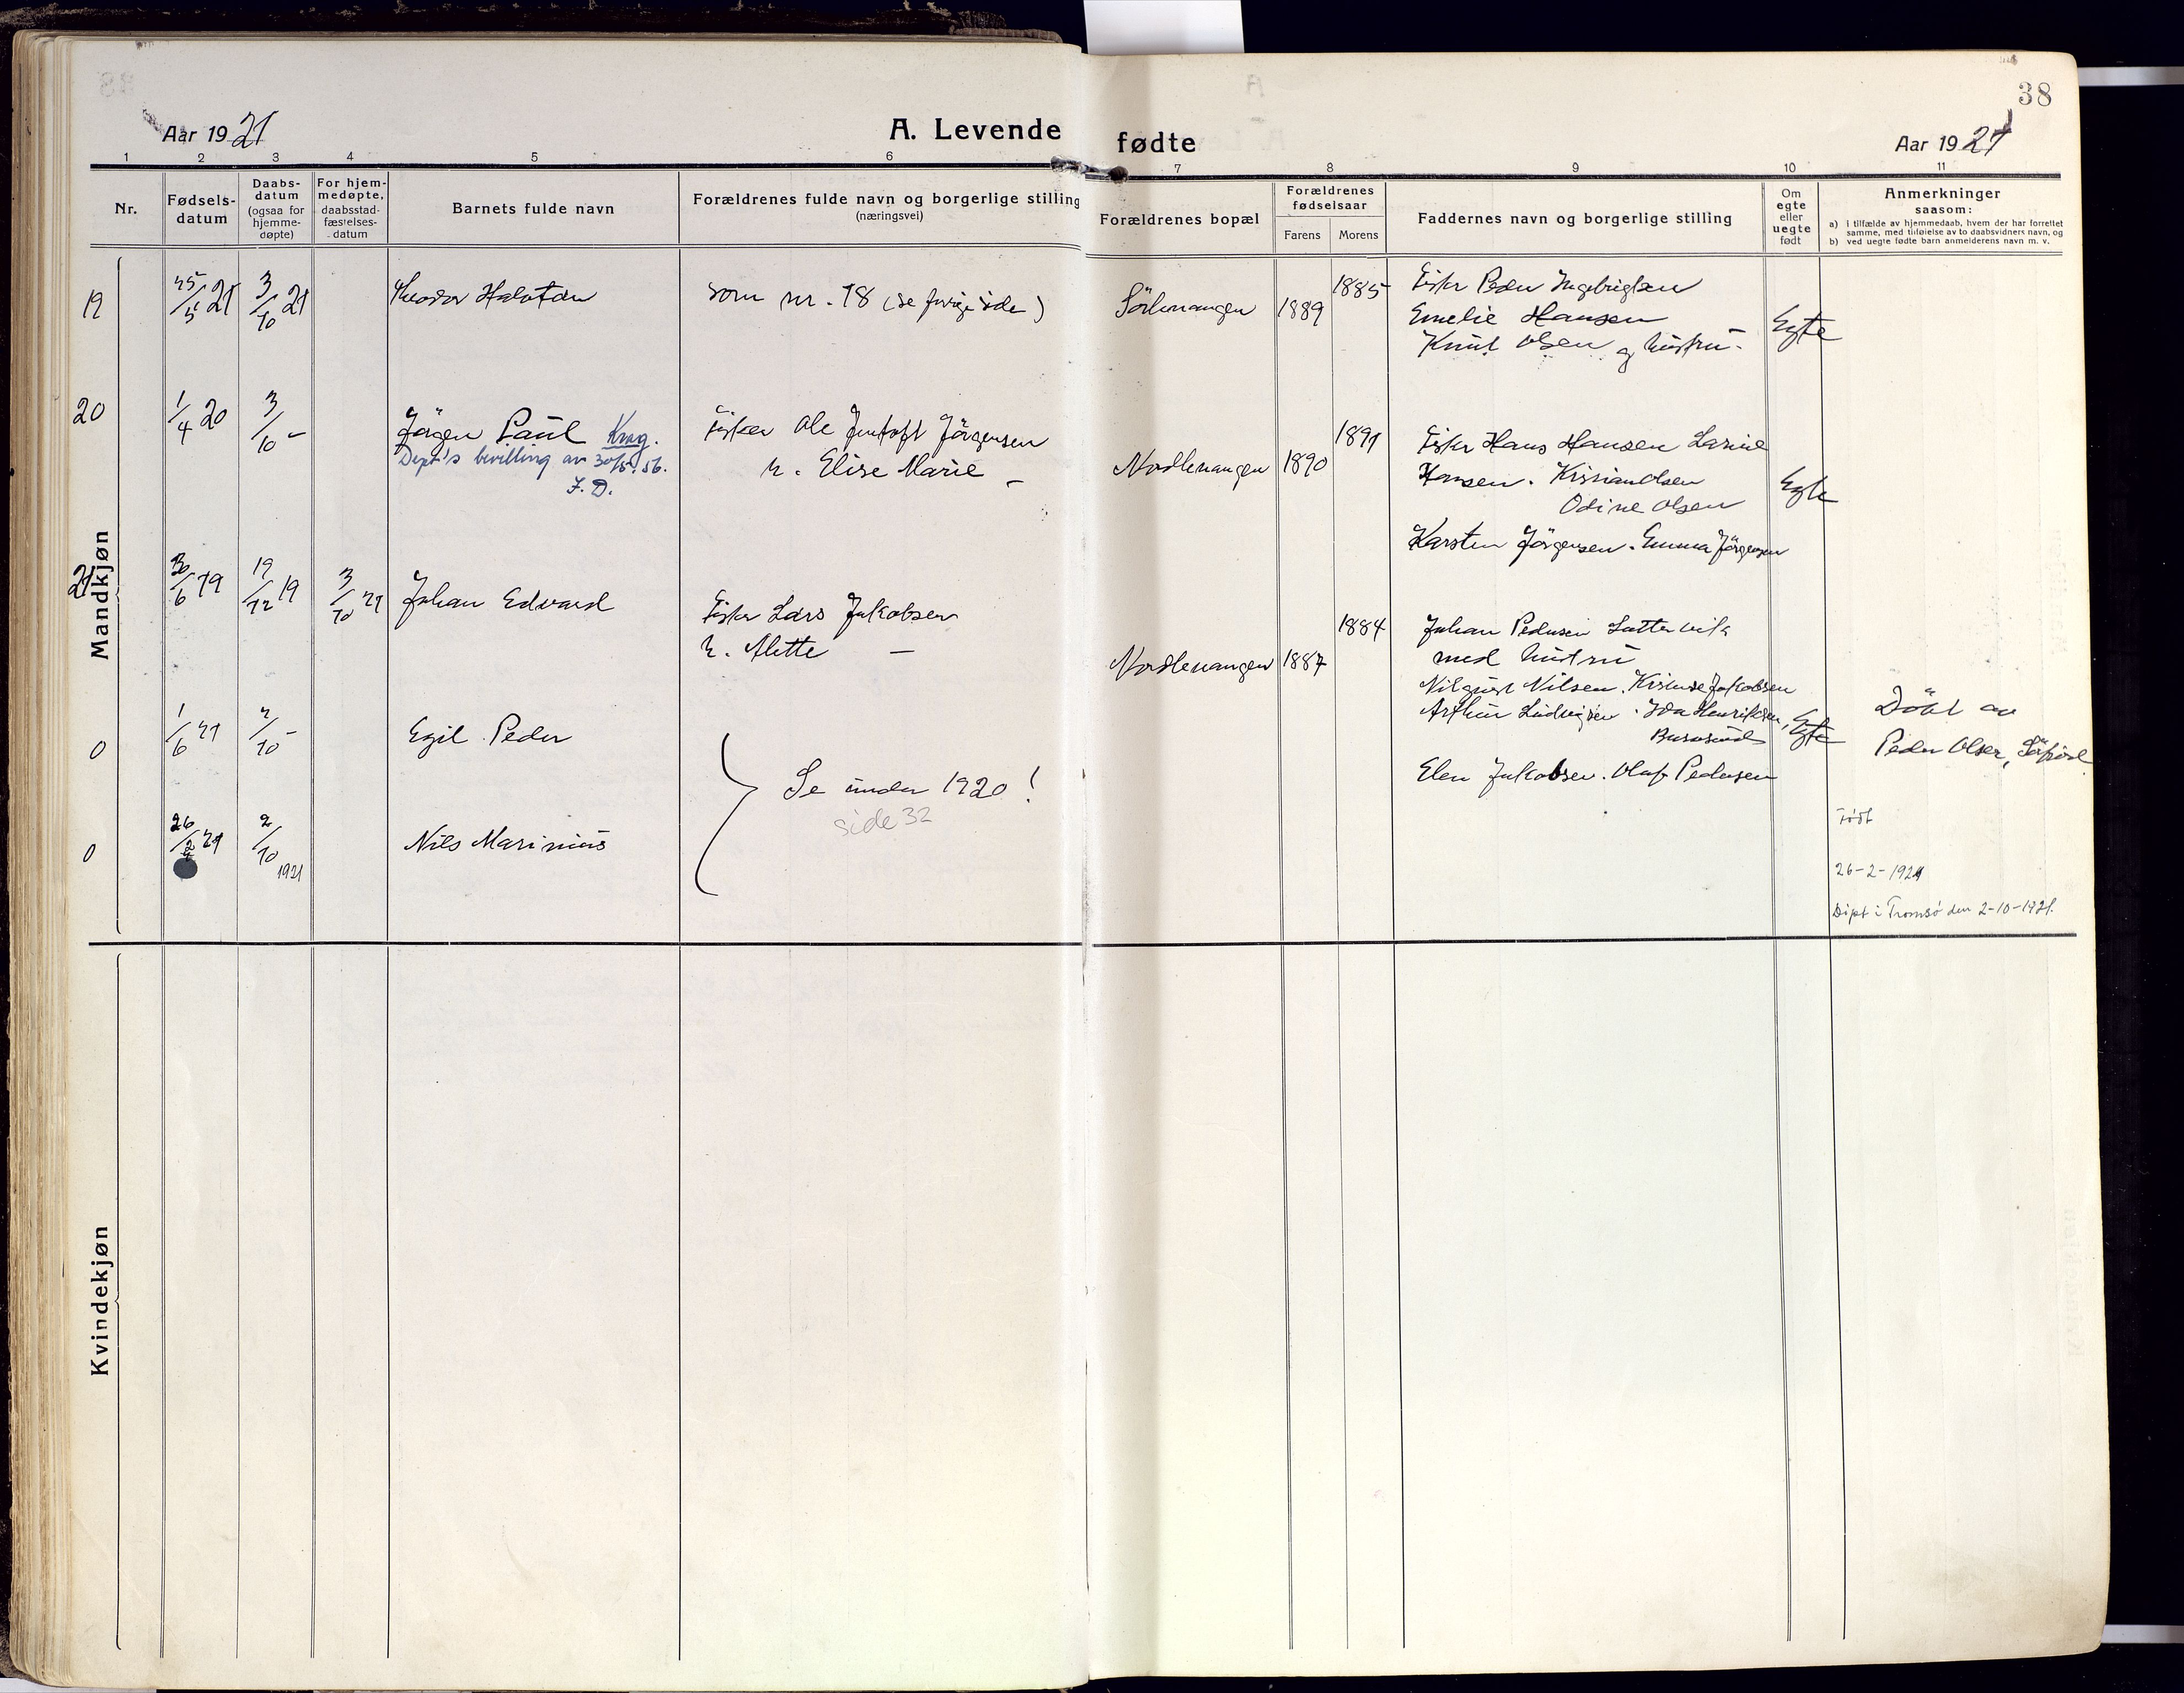 38
Aar 1921
A. Levende
fødte
Aar 1921
1 2 3 4 5 6 7 8 9 10 11
Nr.
Fødsels-
datum
Daabs-
datum
(ogsaa for
hjemme-
døpte)
For hjem-
medøpte,
daabsstad-
fæstelses-
datum
Barnets fulde navn
Forældrenes fulde navn og borgerlige stilling
(næringsvei)
Forældrenes bopæl
Forældrenes
fødselsaar
Farens Morens
Faddernes navn og borgerlige stilling
Om
egte
eller
uegte
født
Anmerkninger
saasom:
a) i tilfælde av hjemmedaab, hvem der har forrettet
samme, med tilføielse av to daabsvidners navn, og
b) ved uegte fødte barn anmelderens navn m. v.
Mandkjøn
19
25/5 21
3/10 21
Theodor Halvdan
som nr. 18 (se forrige side)
Sörlenangen
1889
1885
Fisker Peder Ingebrigtsen
Emelie Hansen
Knut Olsen og hustru
Egte
20
1/4 20
3/10 -
Jörgen Paul Krag.
Dept's bevilling av 30/5.56.
Fisker Ole Jentoft Jörgensen
h. Elise Marie -
Nordlenangen
1890
1891
Fisker Hans Hansen Larine
Hansen. Kristian Olsen
Odine Olsen
Karsten Jörgensen. Emma Jörgensen
Egte
21
30/6 19
19/12 19
3/10 21
Johan Edvard
Fisker Lars Jakobsen
h. Alette -
Nordlenangen
1887
1884
Johan Pedersen Lattervik
med hustru
Nilsen. Jakobsen
Arthur Ludvigsen. Ida Henriksen,
Elen Jakobsen. Olaf Pedersen
Egte
Döbt av
Peder Olsen, Sörfjord
0
1/6 21
2/10 -
Egil Peder
Se under 1920!
side 32
0
26/2 21
2/10 1921
Nils Marinius
Født
26-2-1921
Døpt i Tromsø den 2-10-1921.
Kvindekjøn